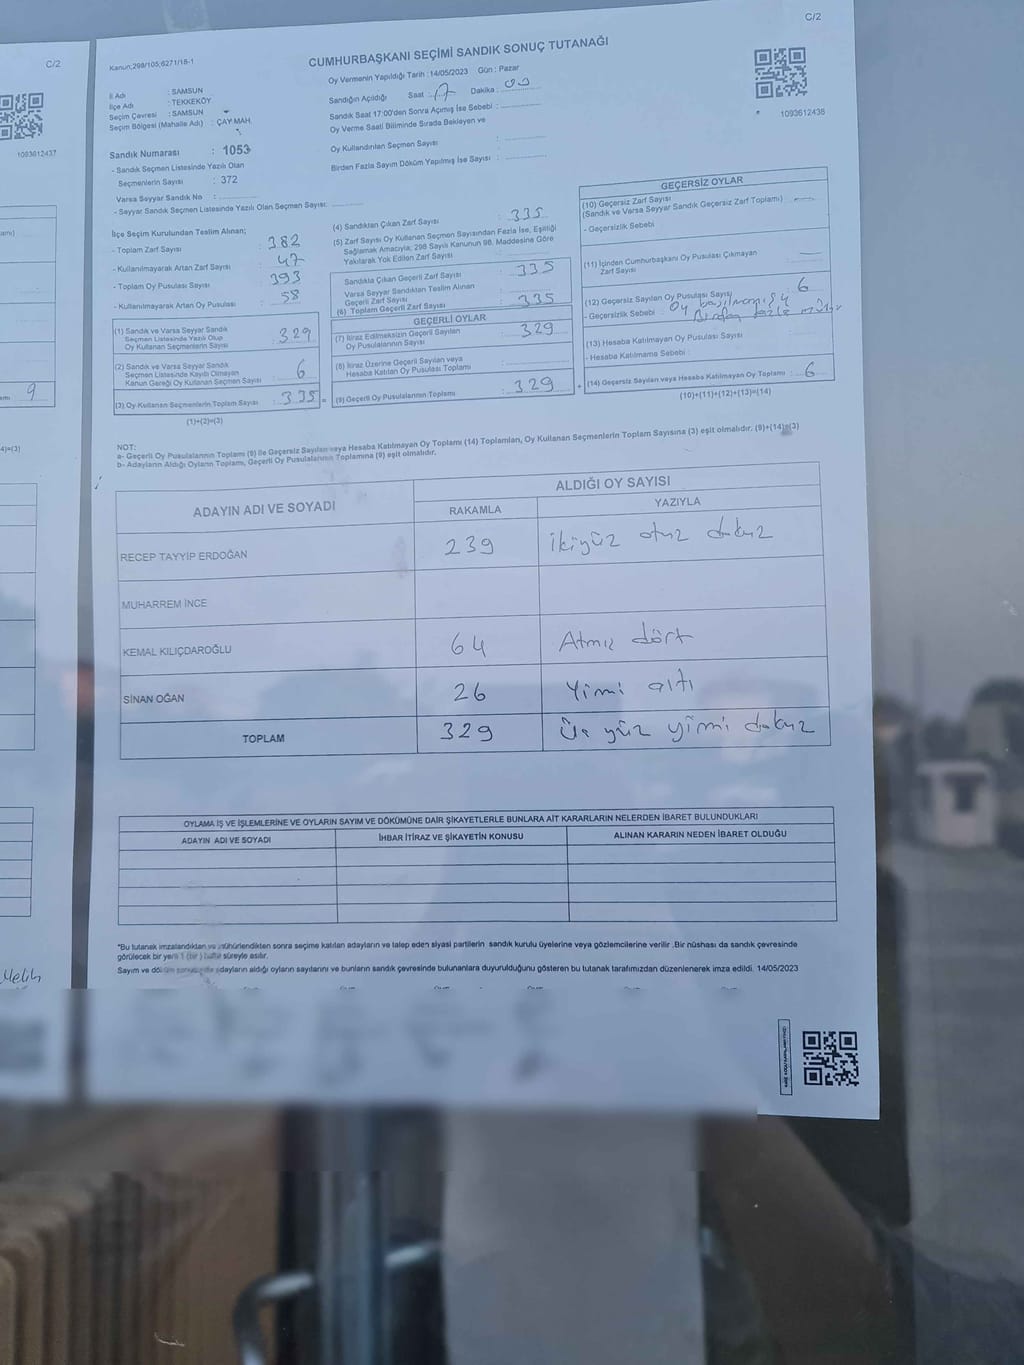 C/2
1093612437
9
Melih
C/2
Kanun;298/105;6271/18-1
CUMHURBAŞKANI SEÇİMİ SANDIK SONUÇ TUTANAĞI
Oy Vermenin Yapıldığı Tarih : 14/05/2023 Gün : Pazar
1093612438
İl Adı : SAMSUN
İlçe Adı : TEKKEKÖY
Seçim Çevresi : SAMSUN
Seçim Bölgesi (Mahalle Adı) : ÇAY MAH.
Sandık Numarası : 1053
- Sandık Seçmen Listesinde Yazılı Olan
Seçmenlerin Sayısı : 372
Varsa Seyyar Sandık No :
- Seyyar Sandık Seçmen Listesinde Yazılı Olan Seçmen Sayısı:
Sandığın Açıldığı Saat : 17 Dakika : 00
Sandık Saat 17:00'den Sonra Açılmış İse Sebebi :
Oy Verme Saati Bitiminde Sırada Bekleyen ve
Oy Kullandırılan Seçmen Sayısı :
Birden Fazla Sayım Döküm Yapılmış İse Sayısı :
İlçe Seçim Kurulundan Teslim Alınan;
- Toplam Zarf Sayısı : 382
- Kullanılmayarak Artan Zarf Sayısı : 47
- Toplam Oy Pusulası Sayısı : 393
- Kullanılmayarak Artan Oy Pusulası : 58
(1) Sandık ve Varsa Seyyar Sandık
Seçmen Listesinde Yazılı Olup
Oy Kullanan Seçmenlerin Sayısı : 329
(2) Sandık ve Varsa Seyyar Sandık
Seçmen Listesinde Kayıtlı Olmayan
Kanun Gereği Oy Kullanan Seçmen Sayısı : 6
(3) Oy Kullanan Seçmenlerin Toplam Sayısı : 335 =
(1)+(2)=(3)
(4) Sandıktan Çıkan Zarf Sayısı : 335
(5) Zarf Sayısı Oy Kullanan Seçmen Sayısından Fazla İse, Eşitliği
Sağlamak Amacıyla; 298 Sayılı Kanunun 98. Maddesine Göre
Yakılarak Yok Edilen Zarf Sayısı :
Sandıkta Çıkan Geçerli Zarf Sayısı : 335
Varsa Seyyar Sandıktan Teslim Alınan
Geçerli Zarf Sayısı :
(6) Toplam Geçerli Zarf Sayısı : 335
GEÇERLİ OYLAR
(7) İtiraz Edilmeksizin Geçerli Sayılan
Oy Pusulalarının Sayısı : 329
(8) İtiraz Üzerine Geçerli Sayılan veya
Hesaba Katılan Oy Pusulası Toplamı :
(9) Geçerli Oy Pusulalarının Toplamı : 329 +
GEÇERSİZ OYLAR
(10) Geçersiz Zarf Sayısı
(Sandık ve Varsa Seyyar Sandık Geçersiz Zarf Toplamı) : —
- Geçersizlik Sebebi :
(11) İçinden Cumhurbaşkanı Oy Pusulası Çıkmayan
Zarf Sayısı : —
(12) Geçersiz Sayılan Oy Pusulası Sayısı : 6
- Geçersizlik Sebebi : Oy basılmamış 4
Birden fazla mühür
(13) Hesaba Katılmayan Oy Pusulası Sayısı :
- Hesaba Katılmama Sebebi :
(14) Geçersiz Sayılan veya Hesaba Katılmayan Oy Toplamı : 6
(10)+(11)+(12)+(13)=(14)
NOT:
a- Geçerli Oy Pusulalarının Toplamı (9) ile Geçersiz Sayılan veya Hesaba Katılmayan Oy Toplamı (14) Toplamları, Oy Kullanan Seçmenlerin Toplam Sayısına (3) eşit olmalıdır. (9)+(14)=(3)
b- Adayların Aldığı Oyların Toplamı, Geçerli Oy Pusulalarının Toplamına (9) eşit olmalıdır.
ADAYIN ADI VE SOYADI
ALDIĞI OY SAYISI
RAKAMLA YAZIYLA
RECEP TAYYİP ERDOĞAN 239 ikiyüz otuz dokuz
MUHARREM İNCE
KEMAL KILIÇDAROĞLU 64 Atmış dört
SİNAN OĞAN 26 Yimi altı
TOPLAM 329 Üç yüz yimi dokuz
OYLAMA İŞ VE İŞLEMLERİNE VE OYLARIN SAYIM VE DÖKÜMÜNE DAİR ŞİKAYETLERLE BUNLARA AİT KARARLARIN NELERDEN İBARET BULUNDUKLARI
ADAYIN ADI VE SOYADI İHBAR İTİRAZ VE ŞİKAYETİN KONUSU ALINAN KARARIN NEDEN İBARET OLDUĞU
*Bu tutanak imzalandıktan ve mühürlendikten sonra seçime katılan adayların ve talep eden siyasi partilerin sandık kurulu üyelerine veya gözlemcilerine verilir. Bir nüshası da sandık çevresinde
görülecek bir yere 1 (bir) hafta süreyle asılır.
Sayım ve döküm sonucunda adayların aldığı oyların sayılarını ve bunların sandık çevresinde bulunanlara duyurulduğunu gösteren bu tutanak tarafımızdan düzenlenerek imza edildi. 14/05/2023